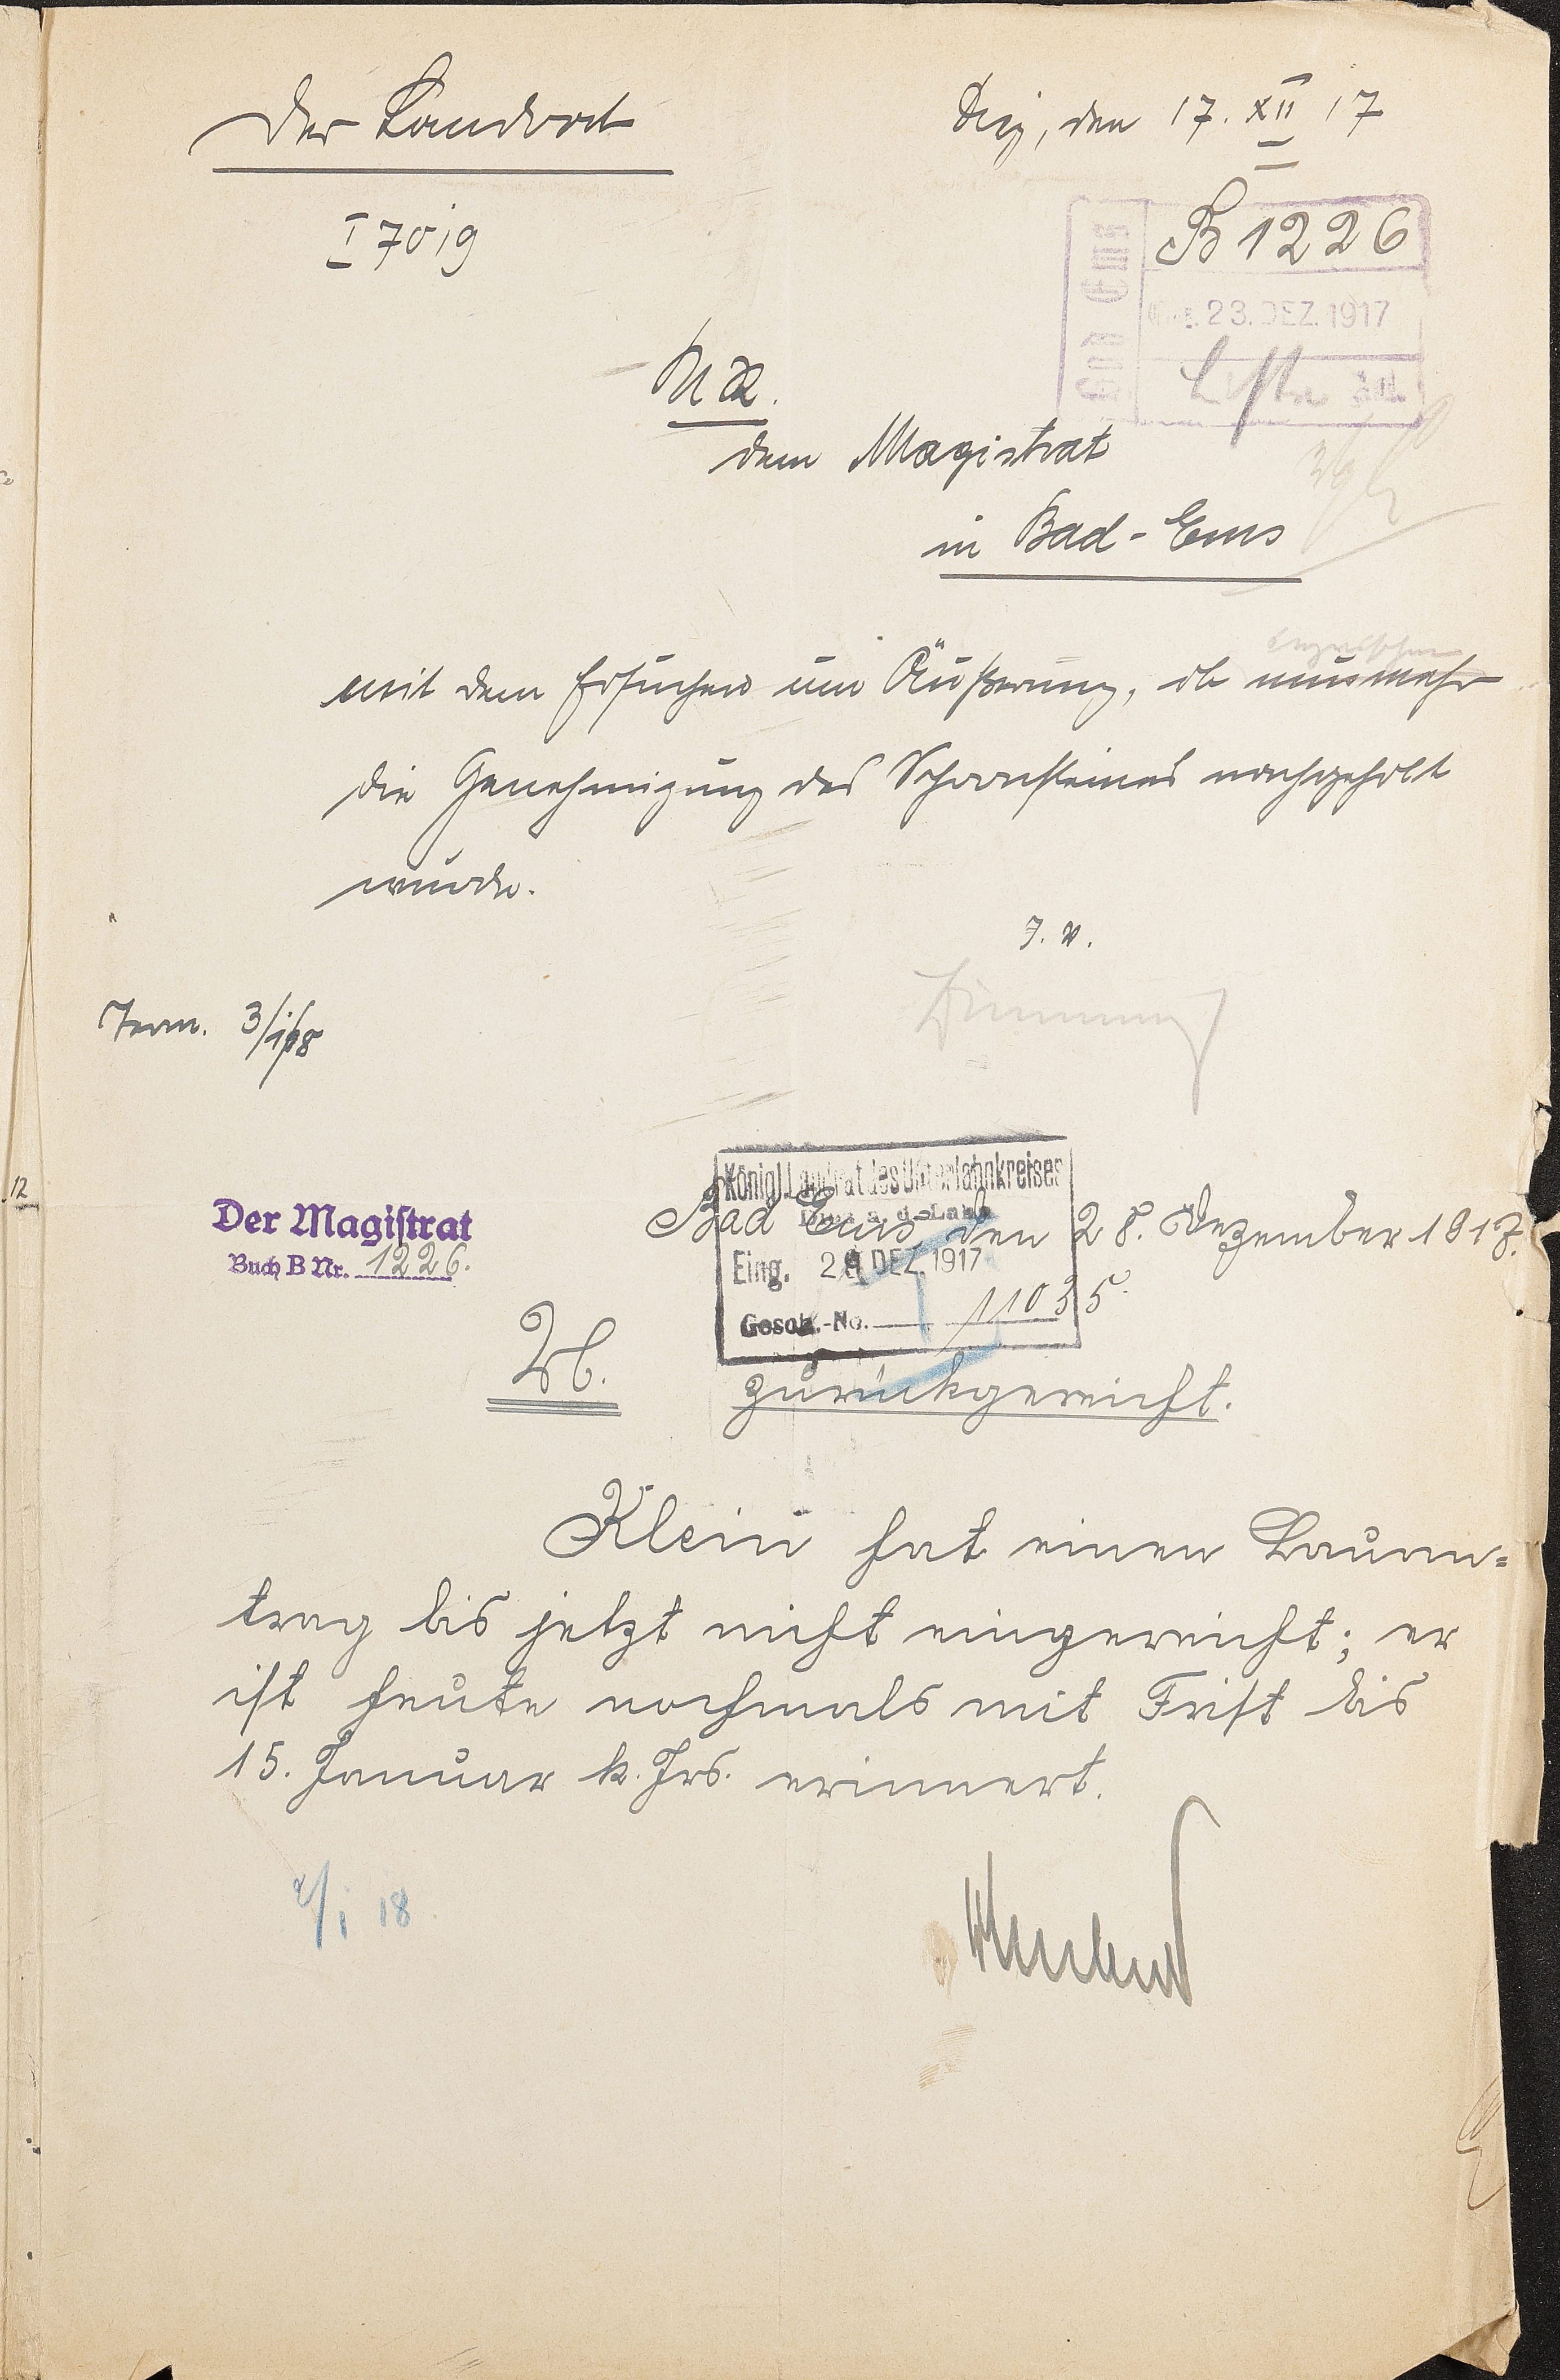 Der Landrat
Diez, den 17. XII 17
I 7019
B 1226
Bad Ems
23. DEZ. 1917
U R.
dem Magistrat
in Bad-Ems
mit dem Ersuchen um Äußerung, ob nunmehr
die Genehmigung des Schornsteines nachgeholt
wurde.
J. V.
Term. 3/1 18
Königl. Landrat des Unterlahnkreises
Diez a. d. Lahn
Eing. 29 DEZ. 1917
Gesch.-No. 11035.
Der Magistrat
Buch B Nr. 1226.
Bad Ems, den 28. Dezember 1917.
U.
zurückgereicht.
Klein hat einen Bauan=
trag bis jetzt nicht eingereicht; er
ist heute nochmals mit Frist bis
15. Januar k. Jrs. erinnert.
2/1 18
12